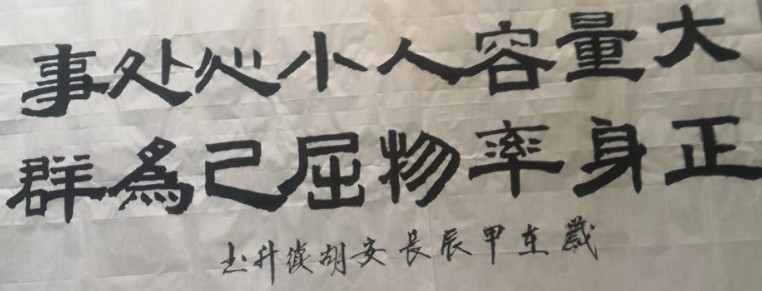 大量容人小心处事
正身率物屈己為群
歲在甲辰長安胡德升书